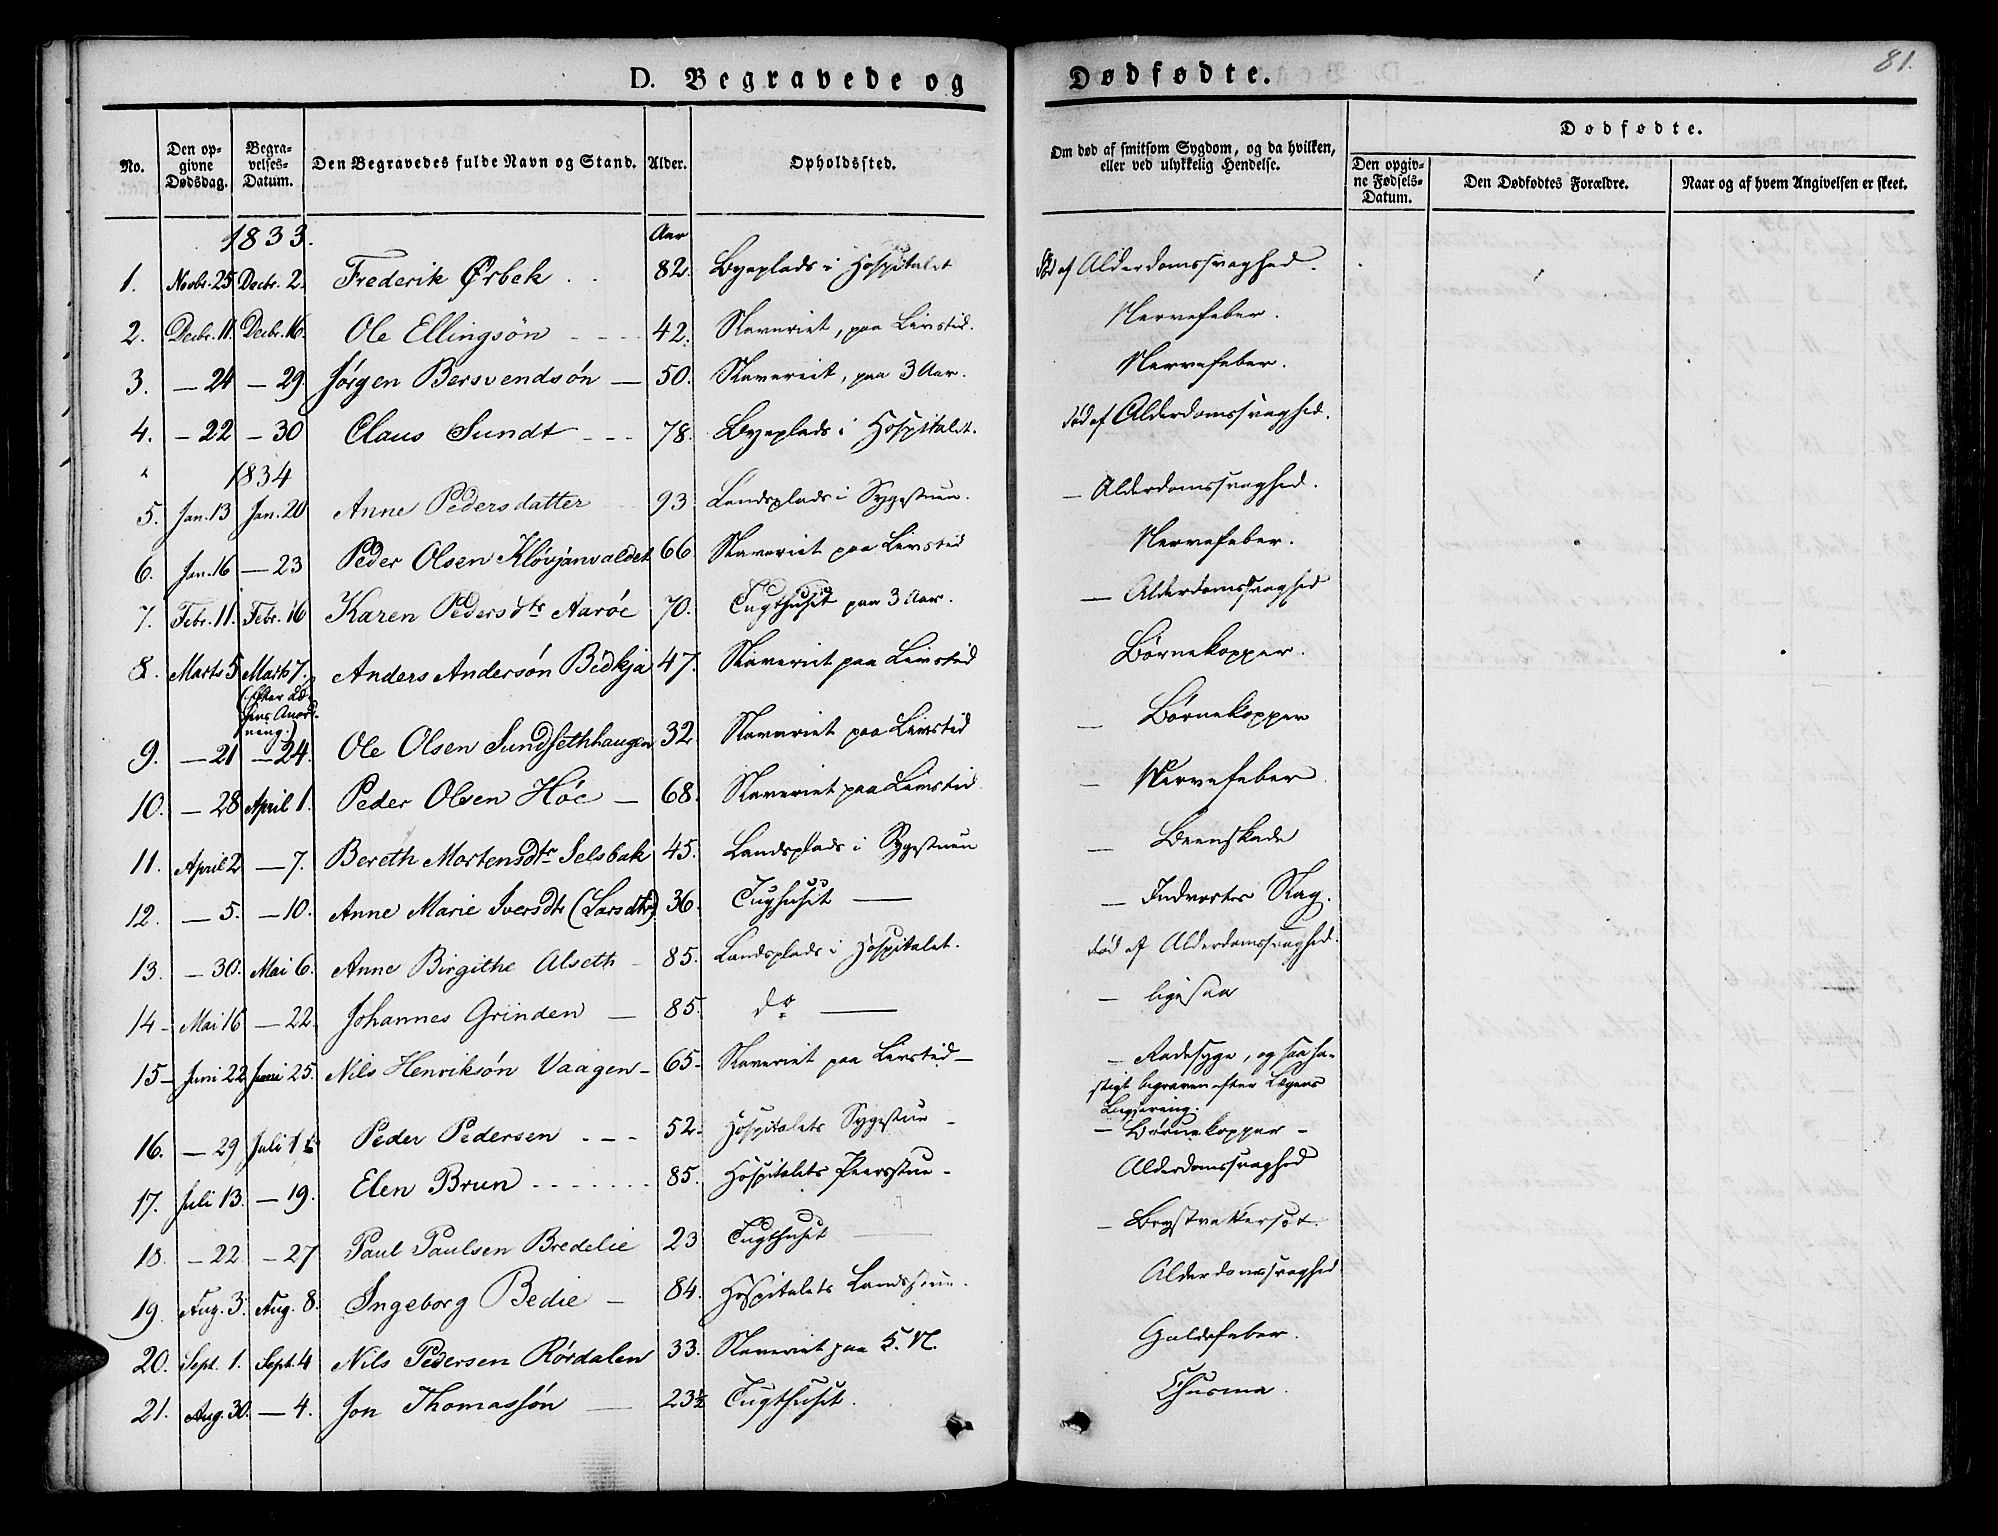 81.
D. Begravede og Dødfødte.
No. Den opgivne Dødsdag. Begravelses-Datum. Den Begravedes fulde Navn og Stand. Alder. Opholdssted. Om død af smitsom Sygdom, og da hvilken, eller ved ulykkelig Hendelse. Dødfødte. Den opgivne Fødsels-Datum. Den Dødfødtes Forældre. Naar og af hvem Angivelsen er skeet.
1833. Aar
1. Novbr. 25 Decbr. 2. Frederik Ørbek 82. Byeplads i Hospitalet død af Alderdomssvaghed.
2. Decbr. 11. Decbr. 16. Ole Ellingsön 42. Slaveriet, paa Livstid. Nervefeber.
3. — 24 — 29 Jørgen Bersvendsön — 50. Slaveriet, paa 3 Aar. Nervefeber.
4. — 22 — 30 Claus Sundt 78. Byeplads i Hospitalet. død af Alderdomssvaghed.
1834
5. Jan. 13 Jan. 20 Anne Pedersdatter 93 Landsplads i Sygestuen. — Alderdomssvaghed.
6. Jan. 16 — 23 Peder Olsen Kløvjanvaldet 66 Slaveriet paa Livstid Nervefeber.
7. Febr. 11. Febr. 16 Karen Pedersdtr Aaröe 70. Tugthuset paa 3 Aar. — Alderdomssvaghed
8. Marts 5 Marts 7. Anders Andersön Bedkja 47. Slaveriet paa Livstid Börnekopper.
(Efter Lægens Anordning.)
9. — 21 — 24. Ole Olsen Sundsethhaugen 32. Slaveriet paa Livstid — Börnekopper
10. — 28 April 1. Peder Olsen Höe — 68. Slaveriet paa Livstid — Nervefeber
11. April 2 — 7. Bereth Mortensdtr Selsbak 45. Landsplads i Sygestuen — Beenskade
12. — 5. — 10. Anne Marie Iversdtr (Larsdtr) 36. Tugthuset — — Indvortes Slag.
13. — 30. Mai 6. Anne Birgithe Alseth 85. Landsplads i Hospitalet. død af Alderdomssvaghed.
14 — Mai 16 — 22. Johannes Grinden — 85. do — — ligesaa
15 — Juni 22 Juni 25. Nils Henriksön Vaagen — 65. Slaveriet paa Livstid — — Radesyge, og saa hastigt begraven efter Lægens
16. — 29 Juli 1 Peder Pedersen 52. Hospitalets Sygestue — — Börnekopper —
17. Juli 13. — 19. Elen Brun 85. Hospitalets — Alderdomssvaghed
18. — 22. — 27 Paul Paulsen Bredelie 23 Tugthuset — — Brystvattersot.
19. Aug. 3. Aug. 8. Ingeborg Bedie — 84. Hospitalets Landsstue. Alderdomssvaghed
20. Sept. 1. Sept. 4 Nils Pedersen Rördalen 33. Slaveriet paa 5. Galdefeber.
21. Aug. 30. — 4. Jon Thomassön — 23½ Tugthuset.